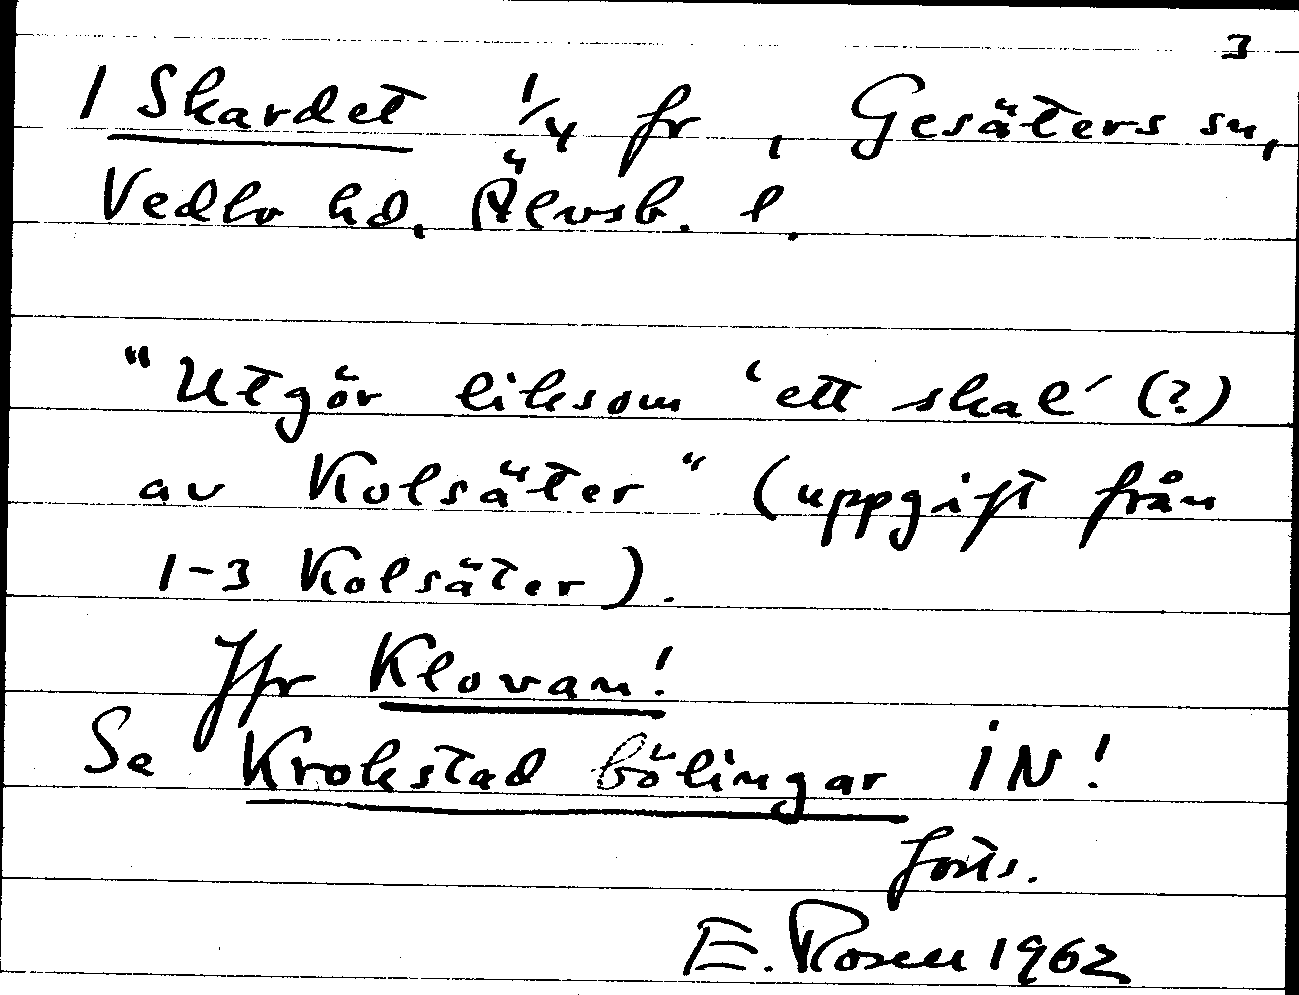 3
1 Skardet 1/4 fr , Gesäters sn,
Vedbo hd. Älvsb. l.
"Utgör liksom 'ett skal' (?)
av Kolsäter" (uppgift från
1-3 Kolsäter).
Jfr Klovan!
Se Krokstad bölingar iN!
forts.
E. Rosell 1962